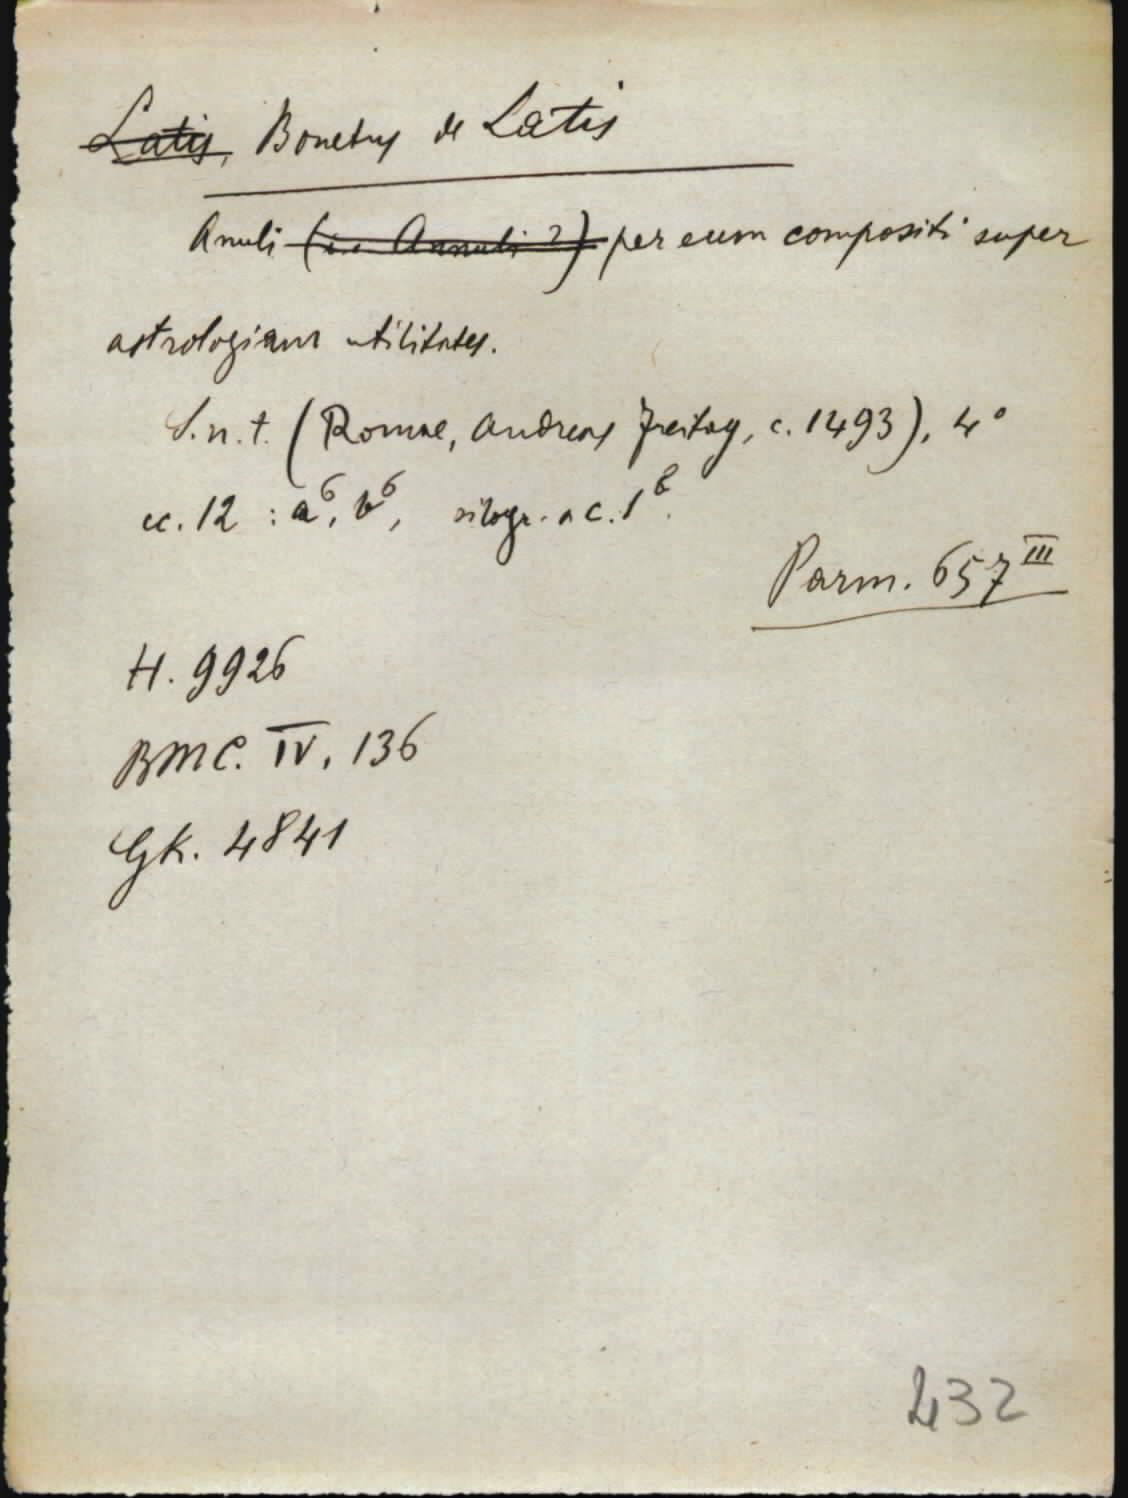 Latis, Bonetus de Latis
Anuli (i.e Annuli ?) per eum compositi super
astrologiam utilitates.
S.n.t. (Romae, Andreas Freitag, c. 1493), 4°
cc. 12 : a⁶, b⁶, silogr. a c. 1ᵇ.
Parm. 657 III
H. 9926
BMC. IV, 136
GK. 4841
432